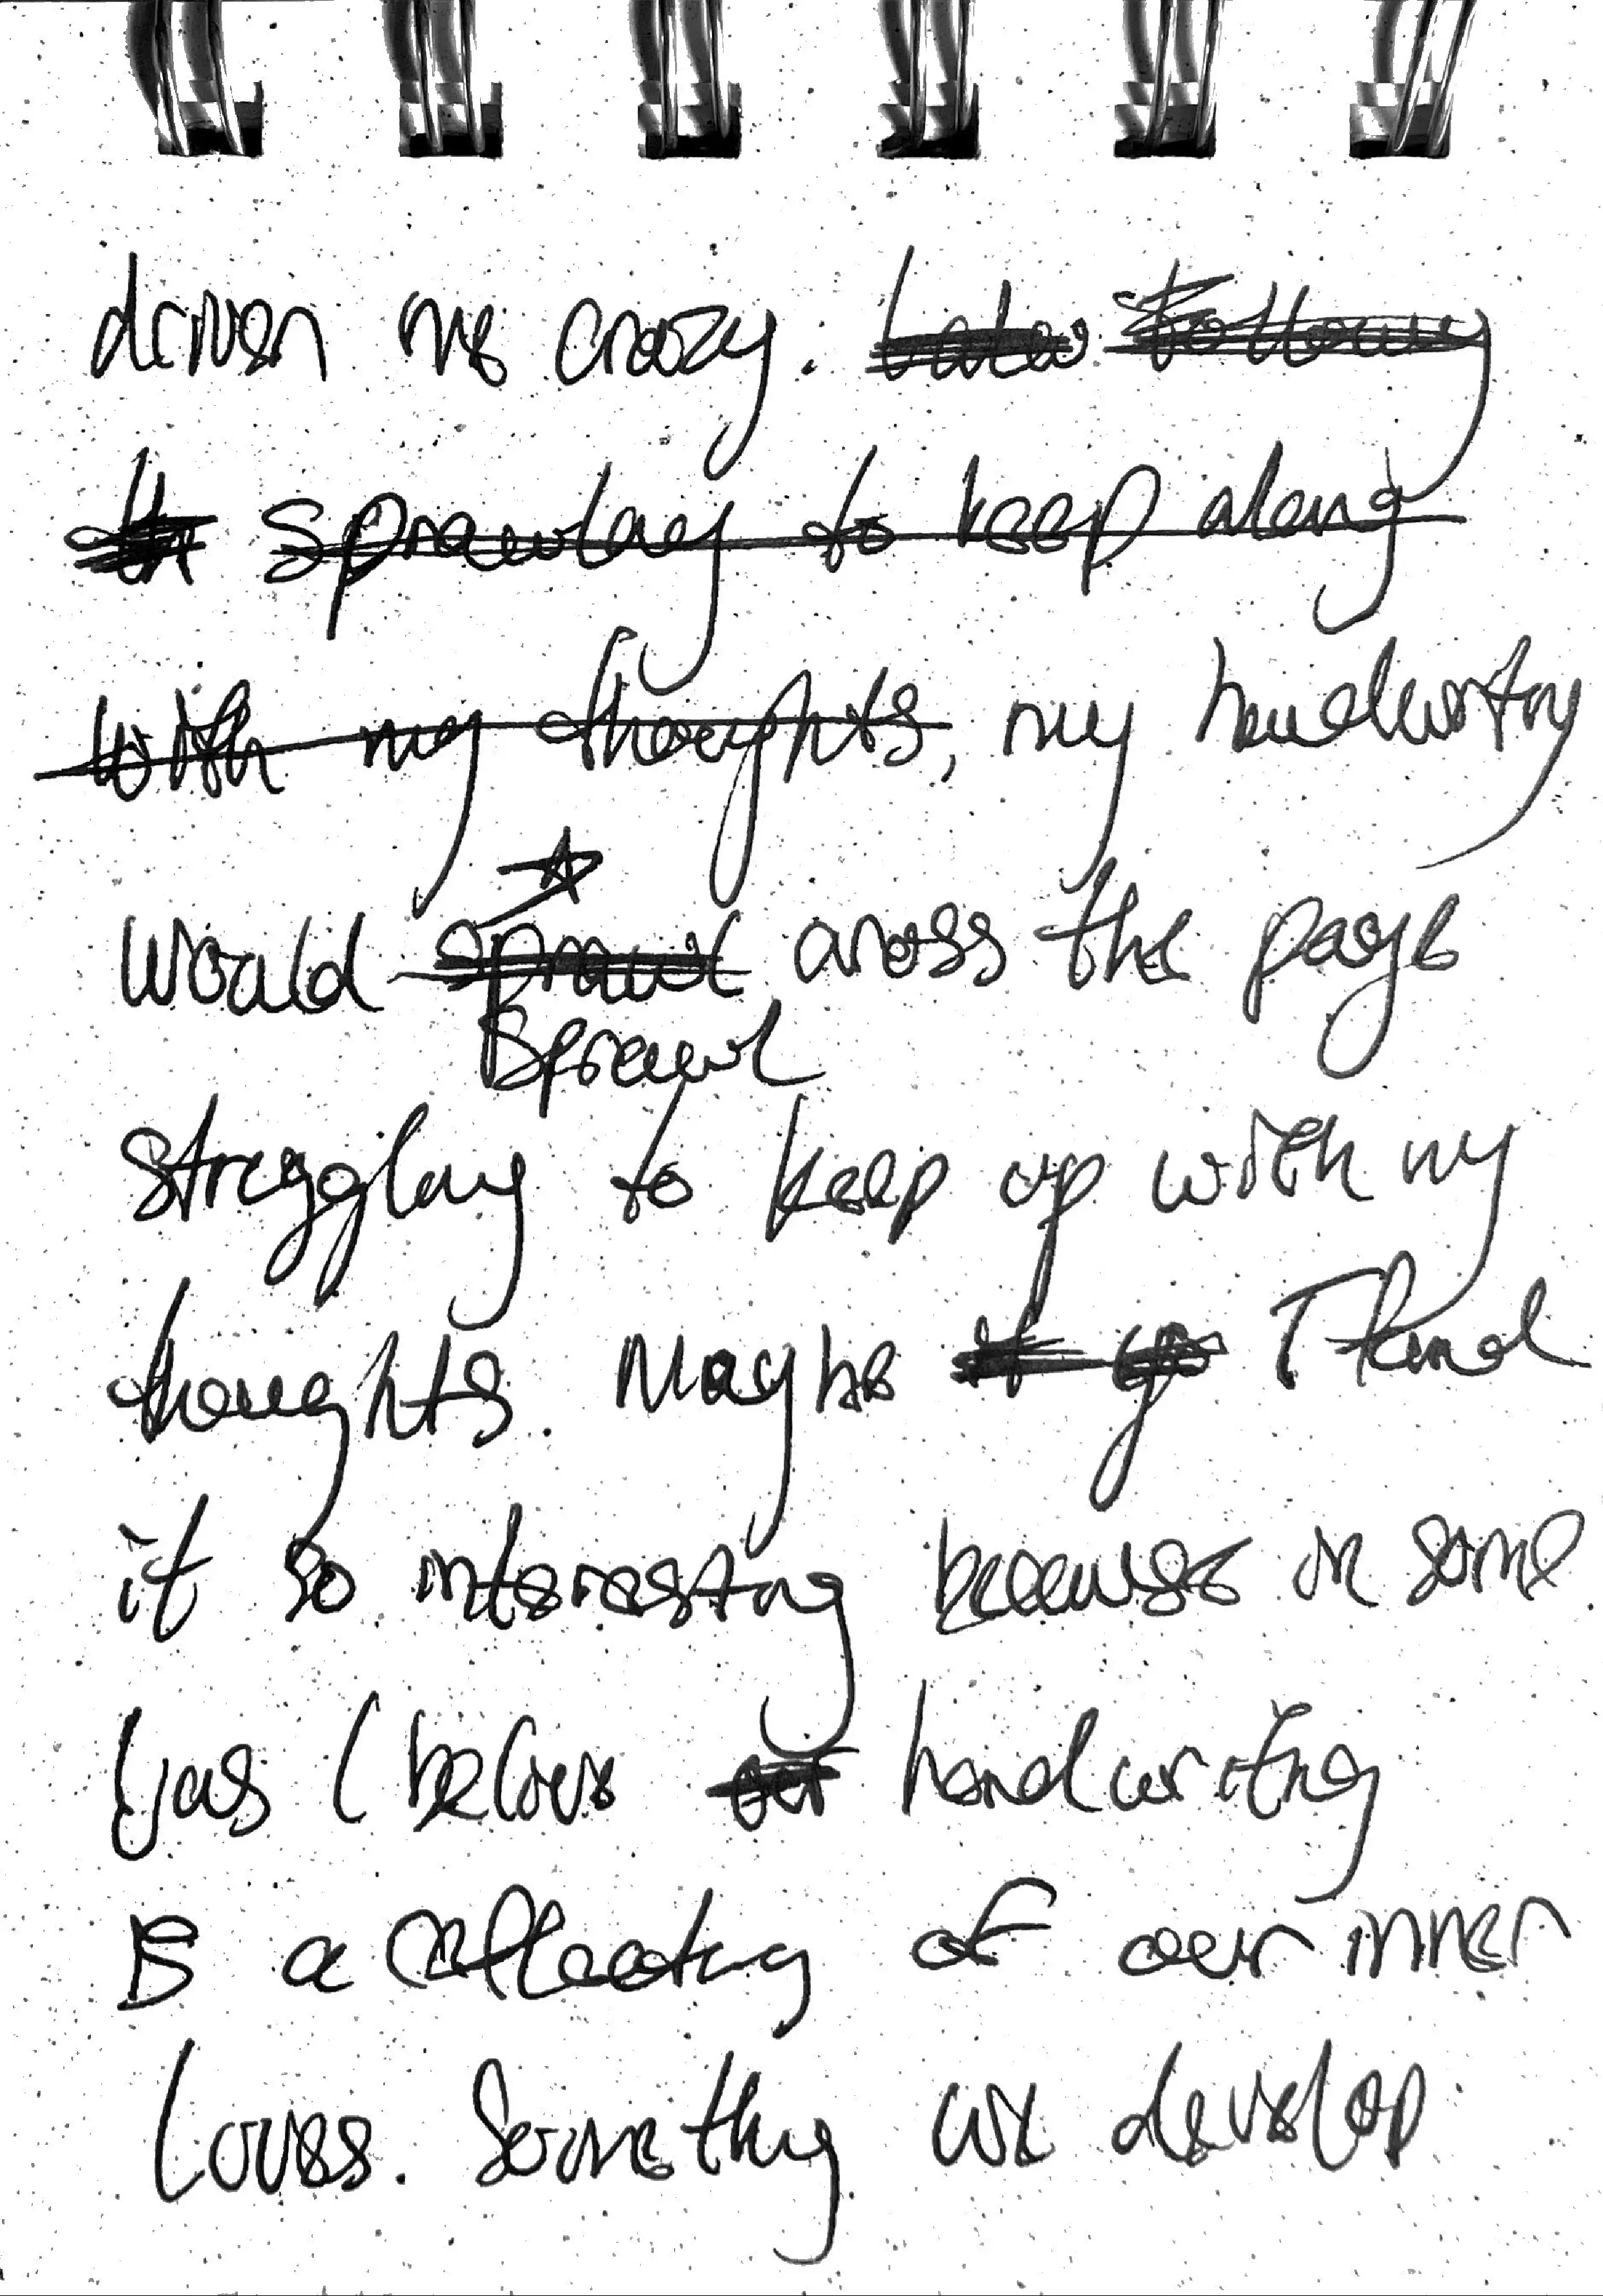 driven me crazy. Later following
sprawling to keep along
with my thoughts, my handwriting
would sprawl across the page
sprawl
struggling to keep up with my
thoughts. Maybe it I find
it so interesting because in some
ways I believe our handwriting
is a reflecting of our inner
loves. Something we develop